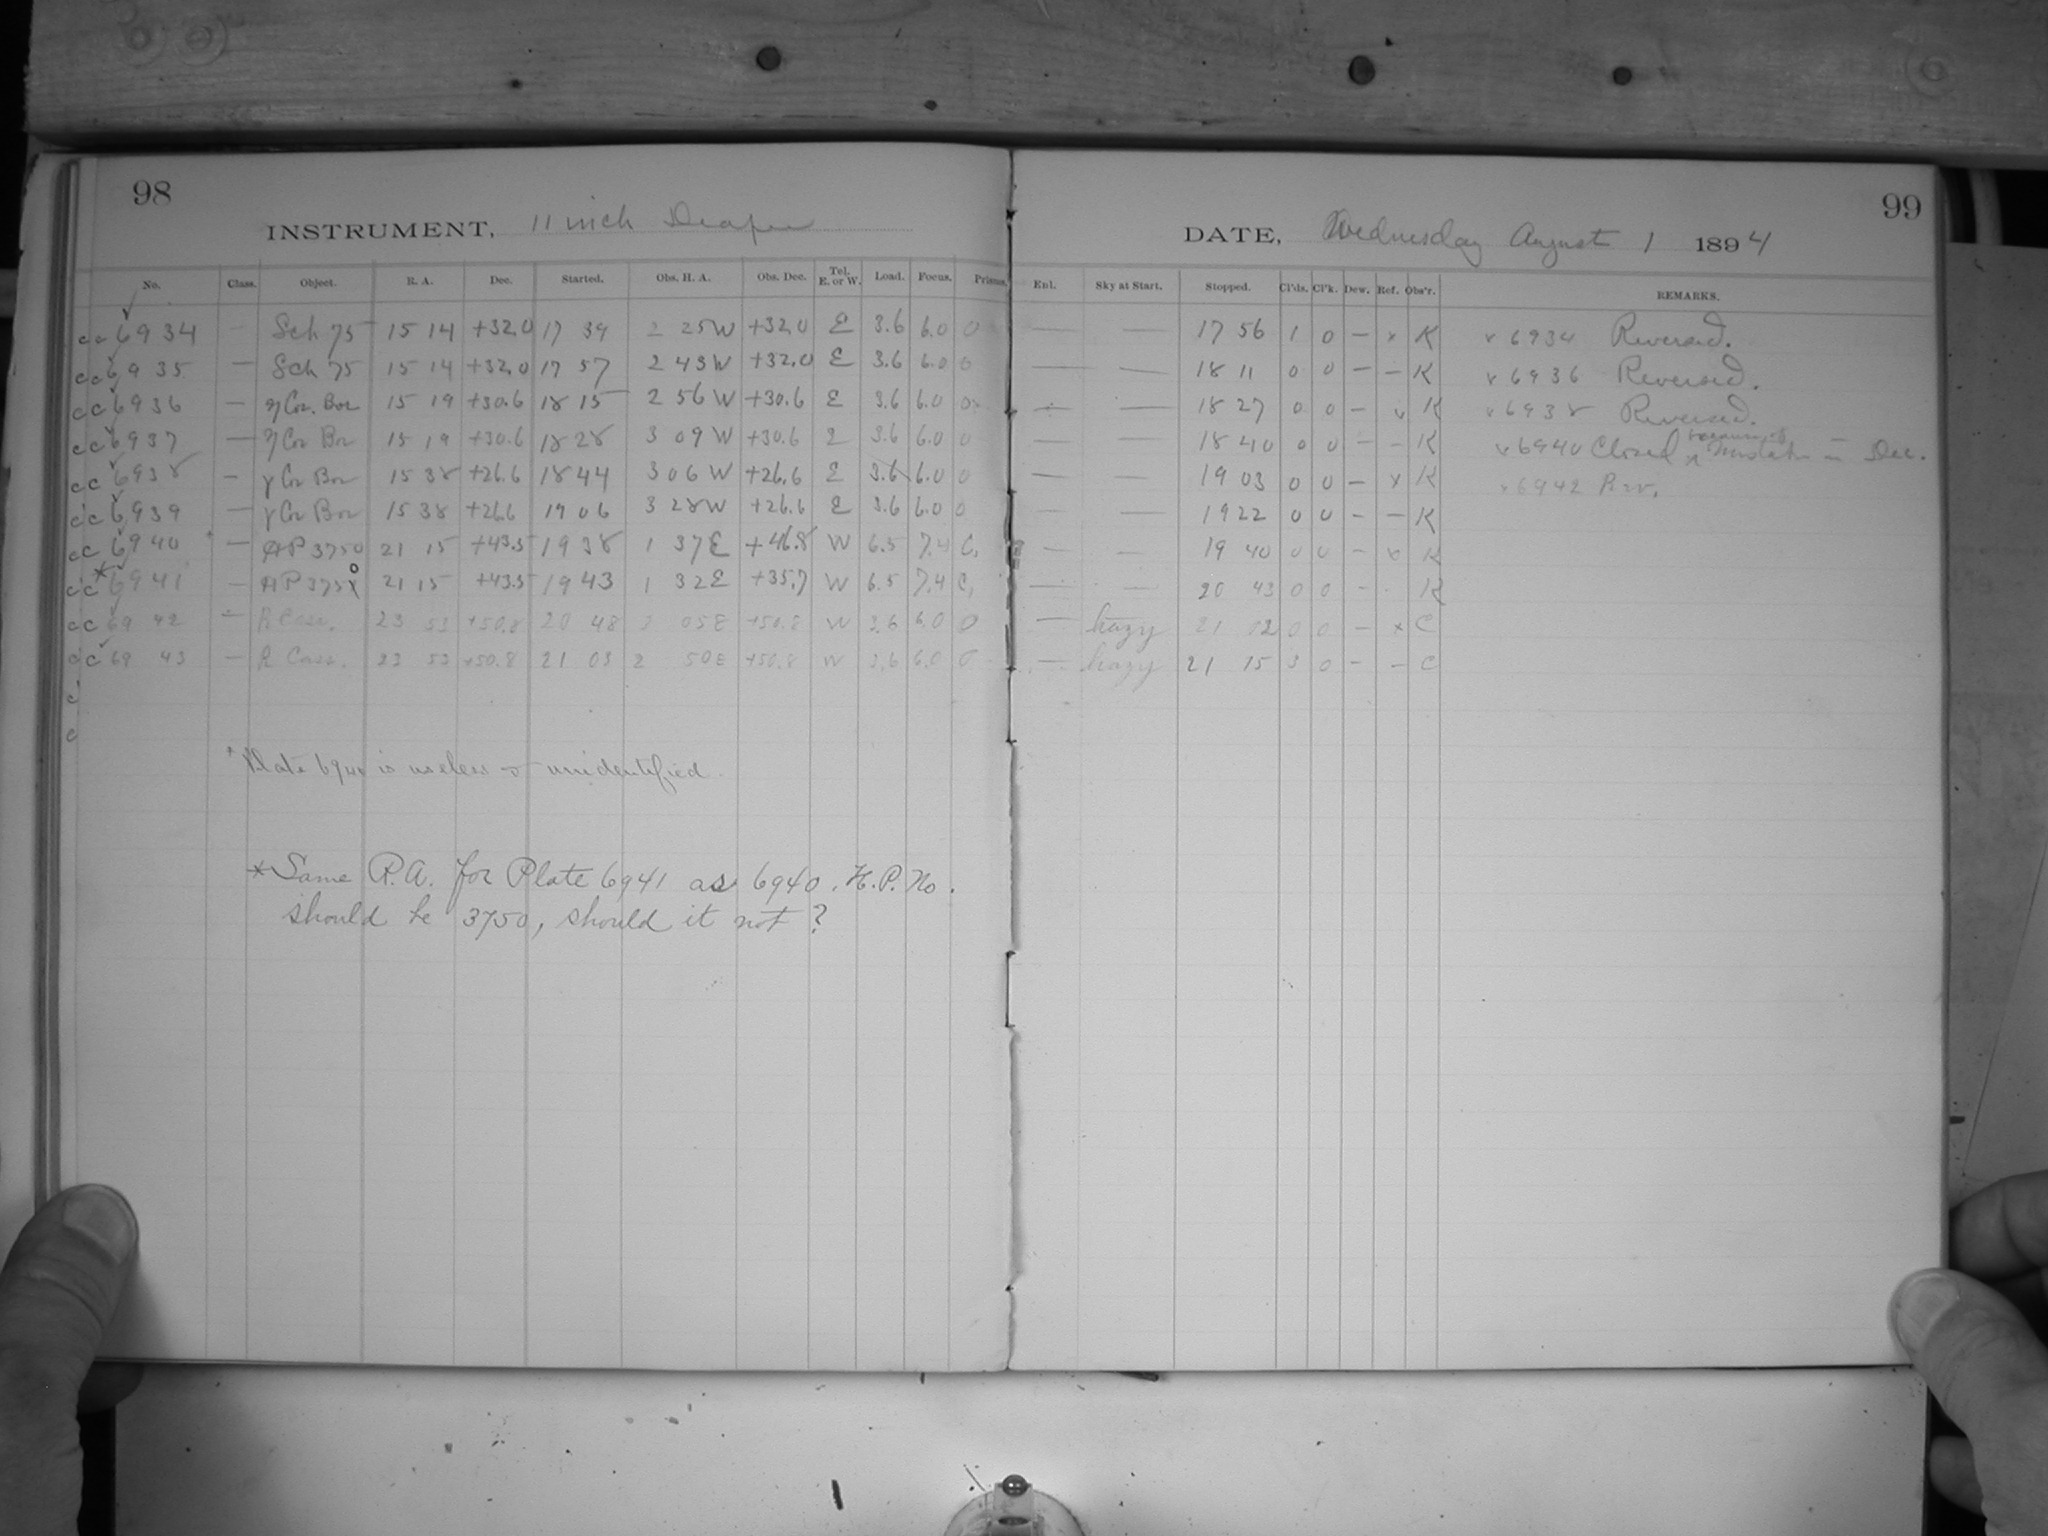 98
INSTRUMENT, 11 inch Draper
No. Class. Object. R. A. Dec. Started. Obs. H. A. Obs. Dec. Tel. E. or W. Load. Focus. Prisms.
cc 6934 — Sch 75 15 14 +32.0 17 39 2 25 W +32.0 E 3.6 6.0 0
cc 6935 — Sch 75 15 14 +32.0 17 57 2 43 W +32.0 E 3.6 6.0 0
cc 6936 — η Cor. Bor 15 19 +30.6 18 15 2 56 W +30.6 E 3.6 6.0 0
cc 6937 — η Cor Bor 15 19 +30.6 18 28 3 09 W +30.6 E 3.6 6.0 0
cc 6938 — γ Cor Bor 15 38 +26.6 18 44 3 06 W +26.6 E 3.6 6.0 0
cc 6939 — γ Cor Bor 15 38 +26.6 19 06 3 28 W +26.6 E 3.6 6.0 0
cc 6940 * — HP 3750 21 15 +43.5 19 38 1 37 E +46.8 W 6.5 7.4 C,
cc * 6941 — HP 3750 21 15 +43.5 19 43 1 32 E +35.7 W 6.5 7.4 C,
cc 6942 — R Cass. 23 53 +50.8 20 48 3 05 E +50.8 W 3.6 6.0 0
cc 6943 — R Cass. 23 53 +50.8 21 03 2 50 E +50.8 W 3.6 6.0 0
c
c
* Plate 6940 is useless & unidentified.
* Same R.A. for Plate 6941 as 6940. H.P. No.
should be 3750, should it not?
99
DATE, Wednesday August 1 1894
Enl. Sky at Start. Stopped. Cl'ds. Cl'k. Dew. Ref. Obs'r. REMARKS.
— — 17 56 1 0 — x K x 6934 Reversed.
— — 18 11 0 0 — — K x 6936 Reversed.
— — 18 27 0 0 — x K x 6938 Reversed.
— — 18 40 0 0 — — K x 6940 Closed because of mistake in Dec.
— — 19 03 0 0 — x K x 6942 Rev.
— — 19 22 0 0 — — K
— — 19 40 0 0 — x K
— — 20 43 0 0 — - K
— hazy 21 02 0 0 — x C
— hazy 21 15 3 0 — — C